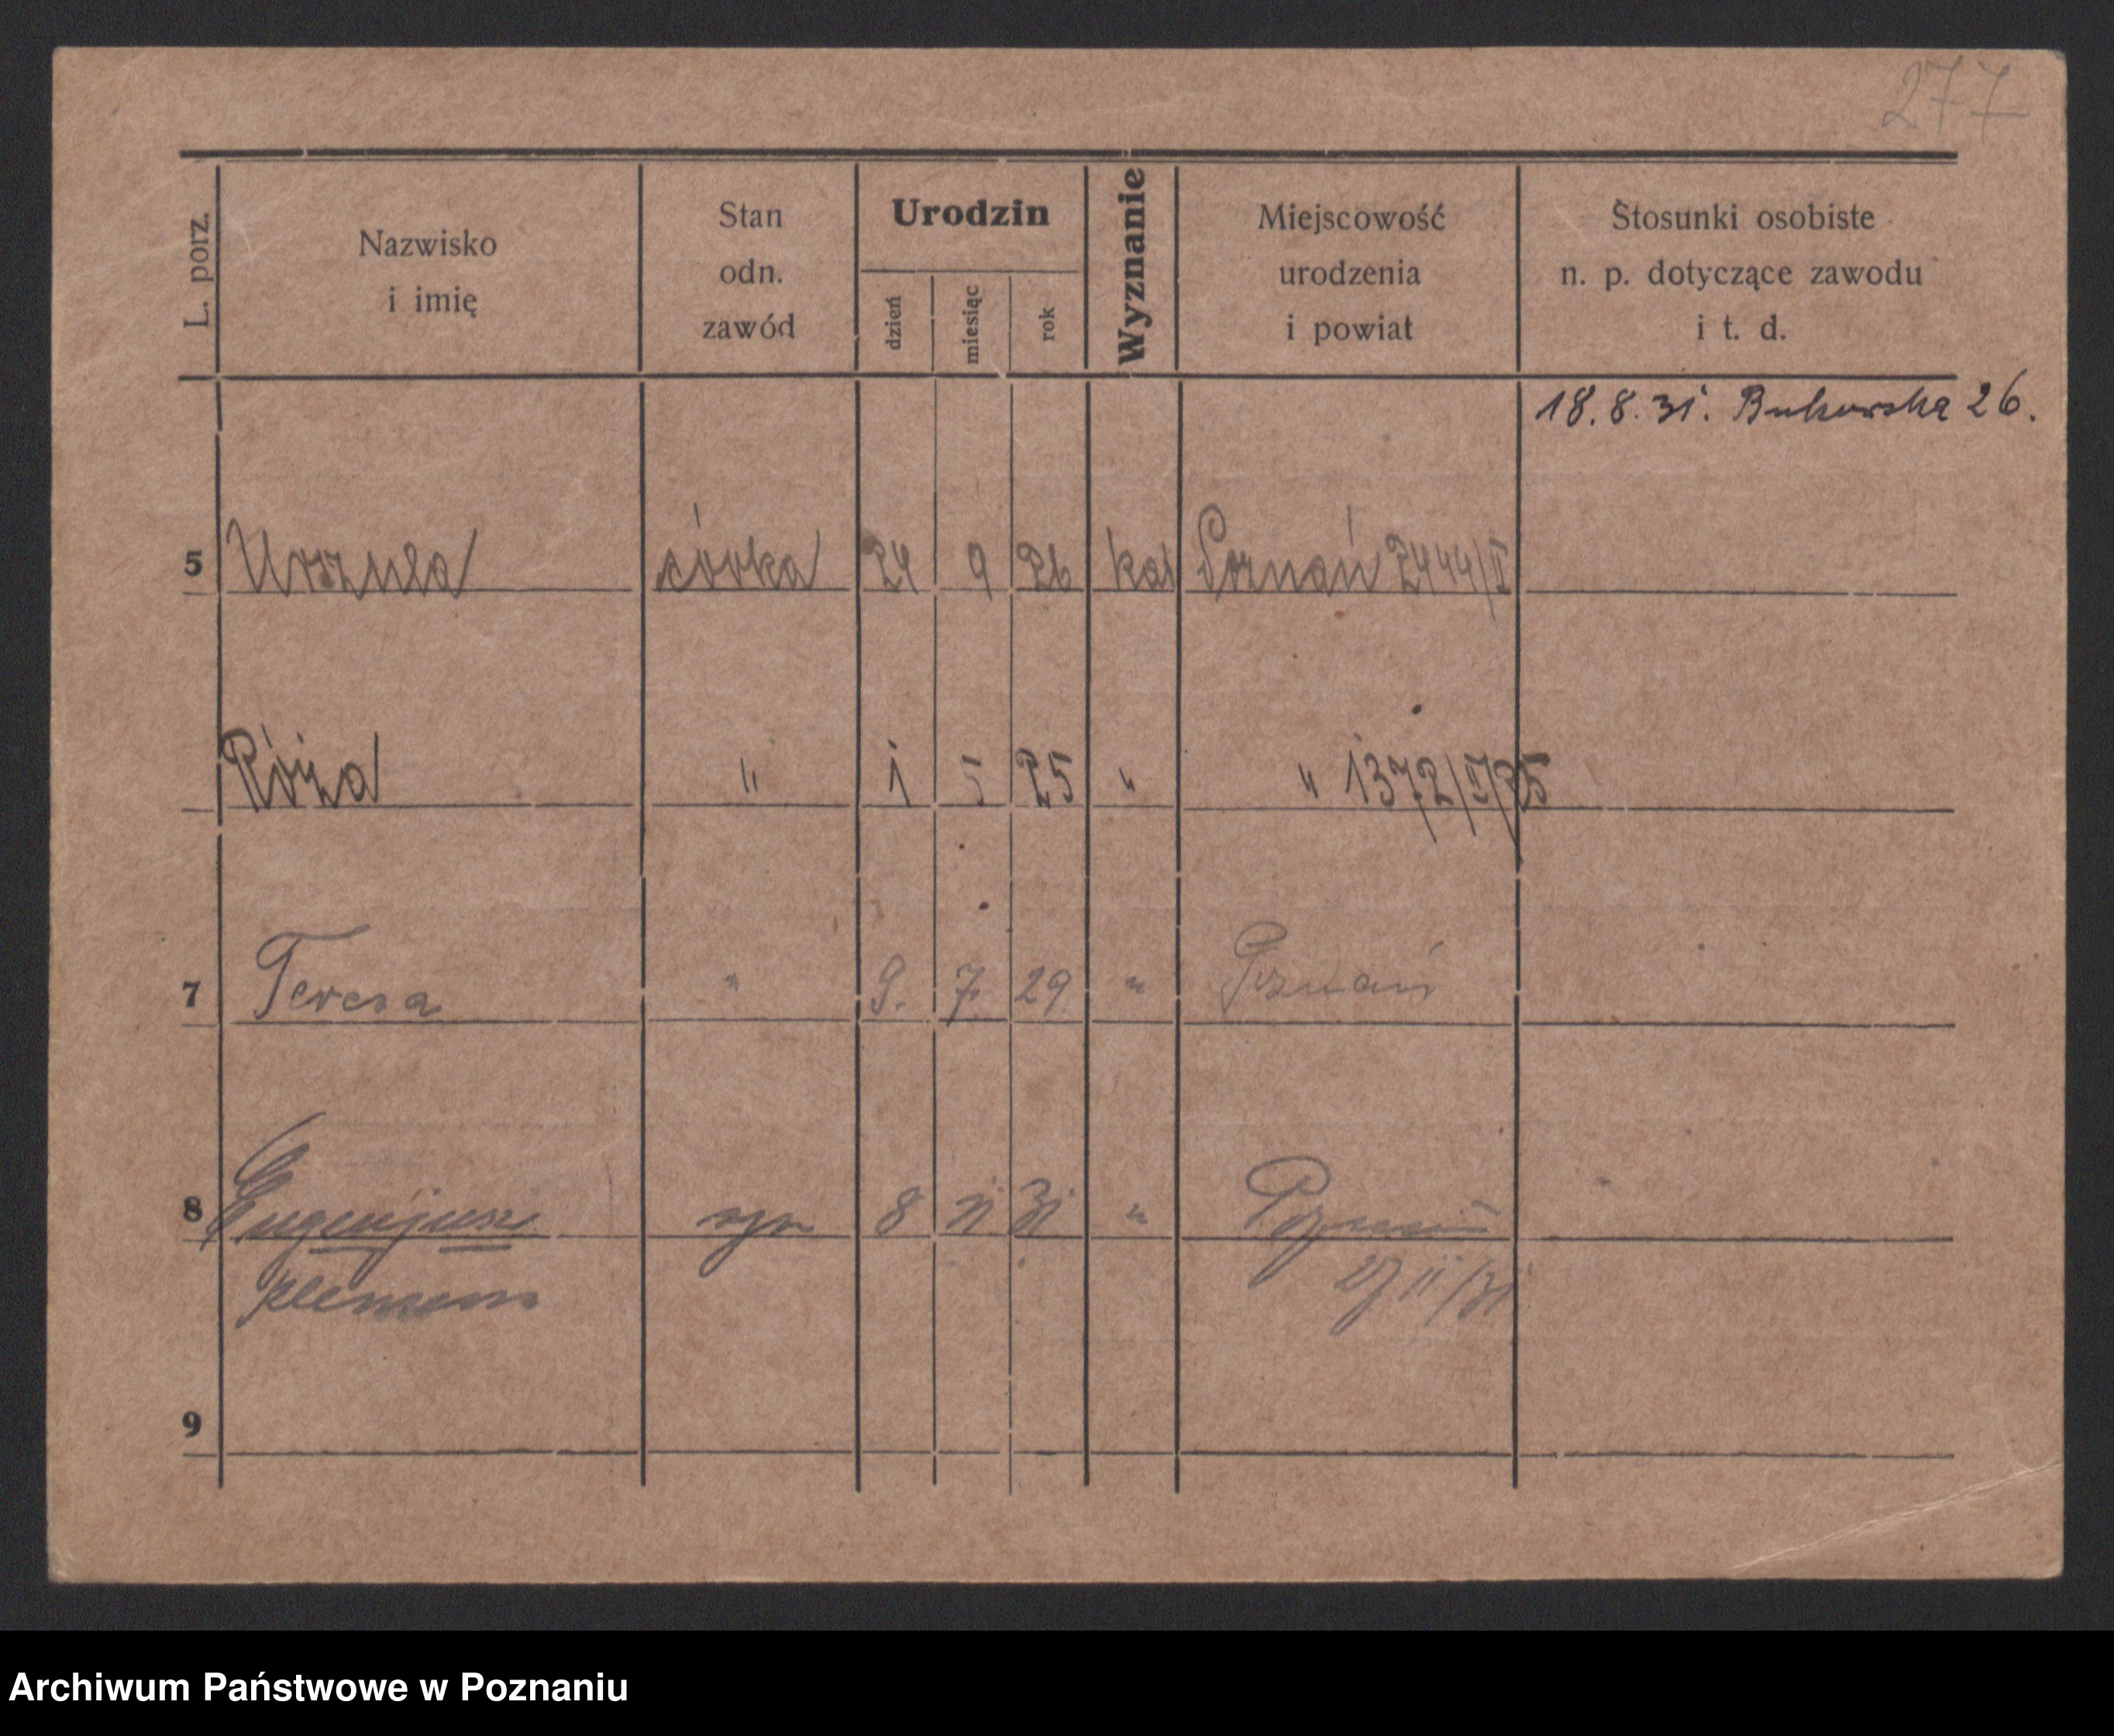 277
L. porz.
Nazwisko
i imię
Stan
odn.
zawód
Urodzin
dzień
miesiąc
rok
Wyznanie
Miejscowość
urodzenia
i powiat
Stosunki osobiste
n. p. dotyczące zawodu
i t. d.
18.8.31. Bukowska 26.
5 Urszula córka 24 9 26 kat Poznań 2444/I
Róża " 1 5 25 " " 1372/I/25
7 Teresa " 9. 7. 29 " Poznań
8 Eugenjusz syn 8 11 31 " Poznań
Klemens
9
Archiwum Państwowe w Poznaniu